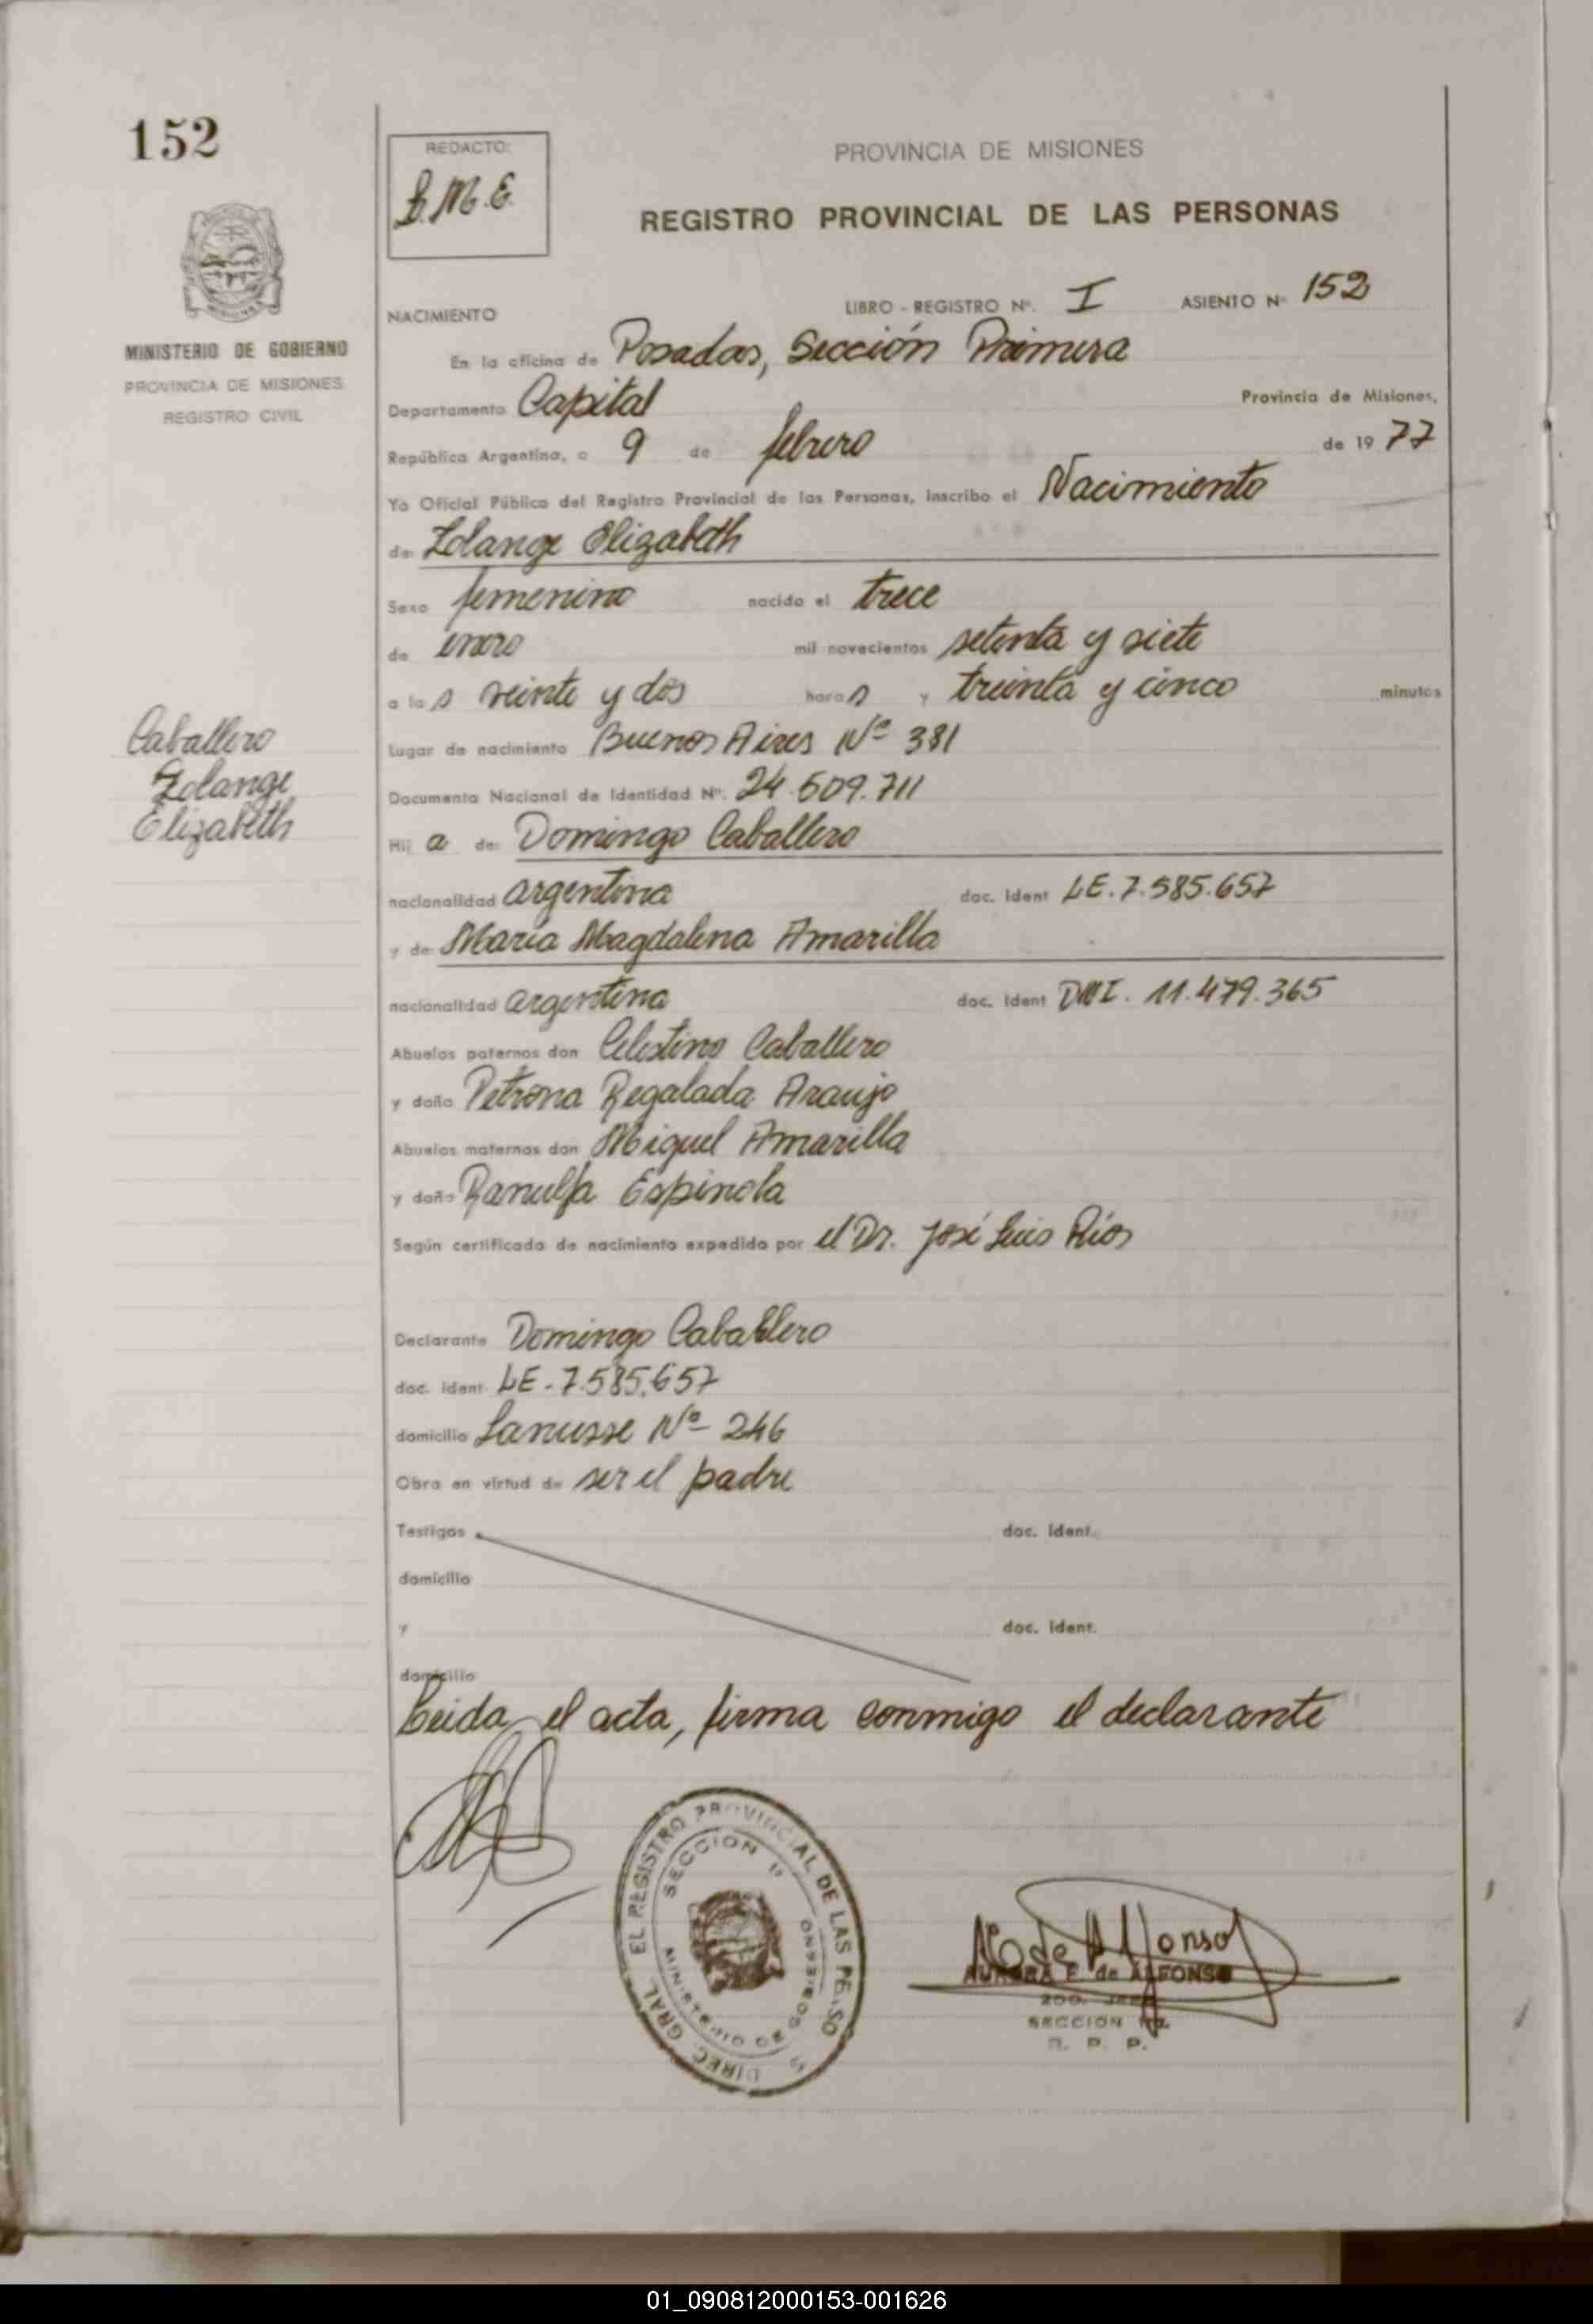 152
REDACTO:
B.M.E.
PROVINCIA DE MISIONES
REGISTRO PROVINCIAL DE LAS PERSONAS
MINISTERIO DE GOBIERNO
PROVINCIA DE MISIONES
REGISTRO CIVIL
NACIMIENTO LIBRO - REGISTRO Nº. I ASIENTO Nº 152
En la oficina de Posadas, Sección Primera
Departamento Capital Provincia de Misiones,
República Argentina, a 9 de febrero de 1977
Yo Oficial Público del Registro Provincial de las Personas, inscribo el Nacimiento
de: Zolange Elizabeth
Sexo femenino nacido el trece
de enero mil novecientos setenta y siete
a las veinte y dos horas y treinta y cinco minutos
Lugar de nacimiento Buenos Aires Nº 381
Caballero
Zolange
Elizabeth
Documento Nacional de Identidad Nº. 24.509.711
Hija de: Domingo Caballero
nacionalidad argentina doc. ident LE. 7.585.657
y de: María Magdalena Amarilla
nacionalidad argentina doc. ident DNI. 11.479.365
Abuelos paternos don Celestino Caballero
y doña Petrona Regalada Araujo
Abuelos maternos don Miguel Amarilla
y doña Ranulfa Espinola
Según certificado de nacimiento expedido por el Dr. José Luis Ríos
Declarante Domingo Caballero
doc. ident LE - 7.585.657
domicilio Lanusse Nº 246
Obra en virtud de ser el padre
Testigos doc. ident.
domicilio
y doc. ident.
domicilio
Leida el acta, firma conmigo el declarante
DIREC. GRAL. EL REGISTRO PROVINCIAL DE LAS PERSO S
SECCION 1ª
MINISTERIO DE GOBIERNO
A de Alfonso
AURORA E. de ALFONSO
2DO. JEFE
SECCION 1ra.
R. P. P.
01_090812000153-001626